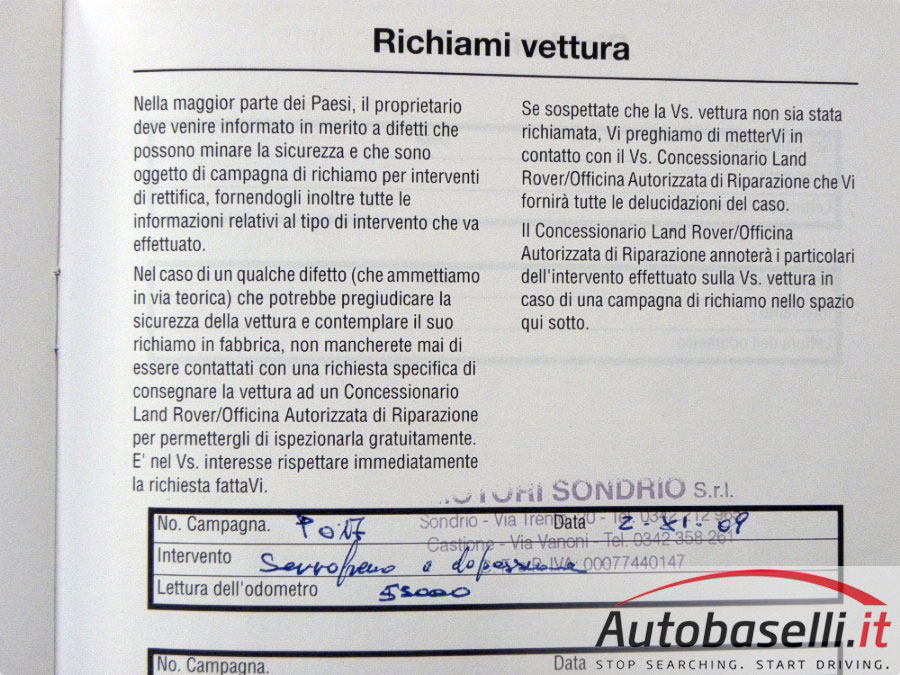 Richiami vettura
Nella maggior parte dei Paesi, il proprietario
deve venire informato in merito a difetti che
possono minare la sicurezza e che sono
oggetto di campagna di richiamo per interventi
di rettifica, fornendogli inoltre tutte le
informazioni relativi al tipo di intervento che va
effettuato.
Nel caso di un qualche difetto (che ammettiamo
in via teorica) che potrebbe pregiudicare la
sicurezza della vettura e contemplare il suo
richiamo in fabbrica, non mancherete mai di
essere contattati con una richiesta specifica di
consegnare la vettura ad un Concessionario
Land Rover/Officina Autorizzata di Riparazione
per permettergli di ispezionarla gratuitamente.
E' nel Vs. interesse rispettare immediatamente
la richiesta fattaVi.
Se sospettate che la Vs. vettura non sia stata
richiamata, Vi preghiamo di metterVi in
contatto con il Vs. Concessionario Land
Rover/Officina Autorizzata di Riparazione che Vi
fornirà tutte le delucidazioni del caso.
Il Concessionario Land Rover/Officina
Autorizzata di Riparazione annoterà i particolari
dell'intervento effettuato sulla Vs. vettura in
caso di una campagna di richiamo nello spazio
qui sotto.
MOTORI SONDRIO S.r.l.
Sondrio - Via Trento, 90 - Tel. 0342 212
Castione - Via Vanoni - Tel. 0342 358 261
P.IVA: 00077440147
No. Campagna. Data 2-XI-09
Intervento Servofreno a
Lettura dell'odometro 55000
No. Campagna. Data
Autobaselli.it
STOP SEARCHING. START DRIVING.